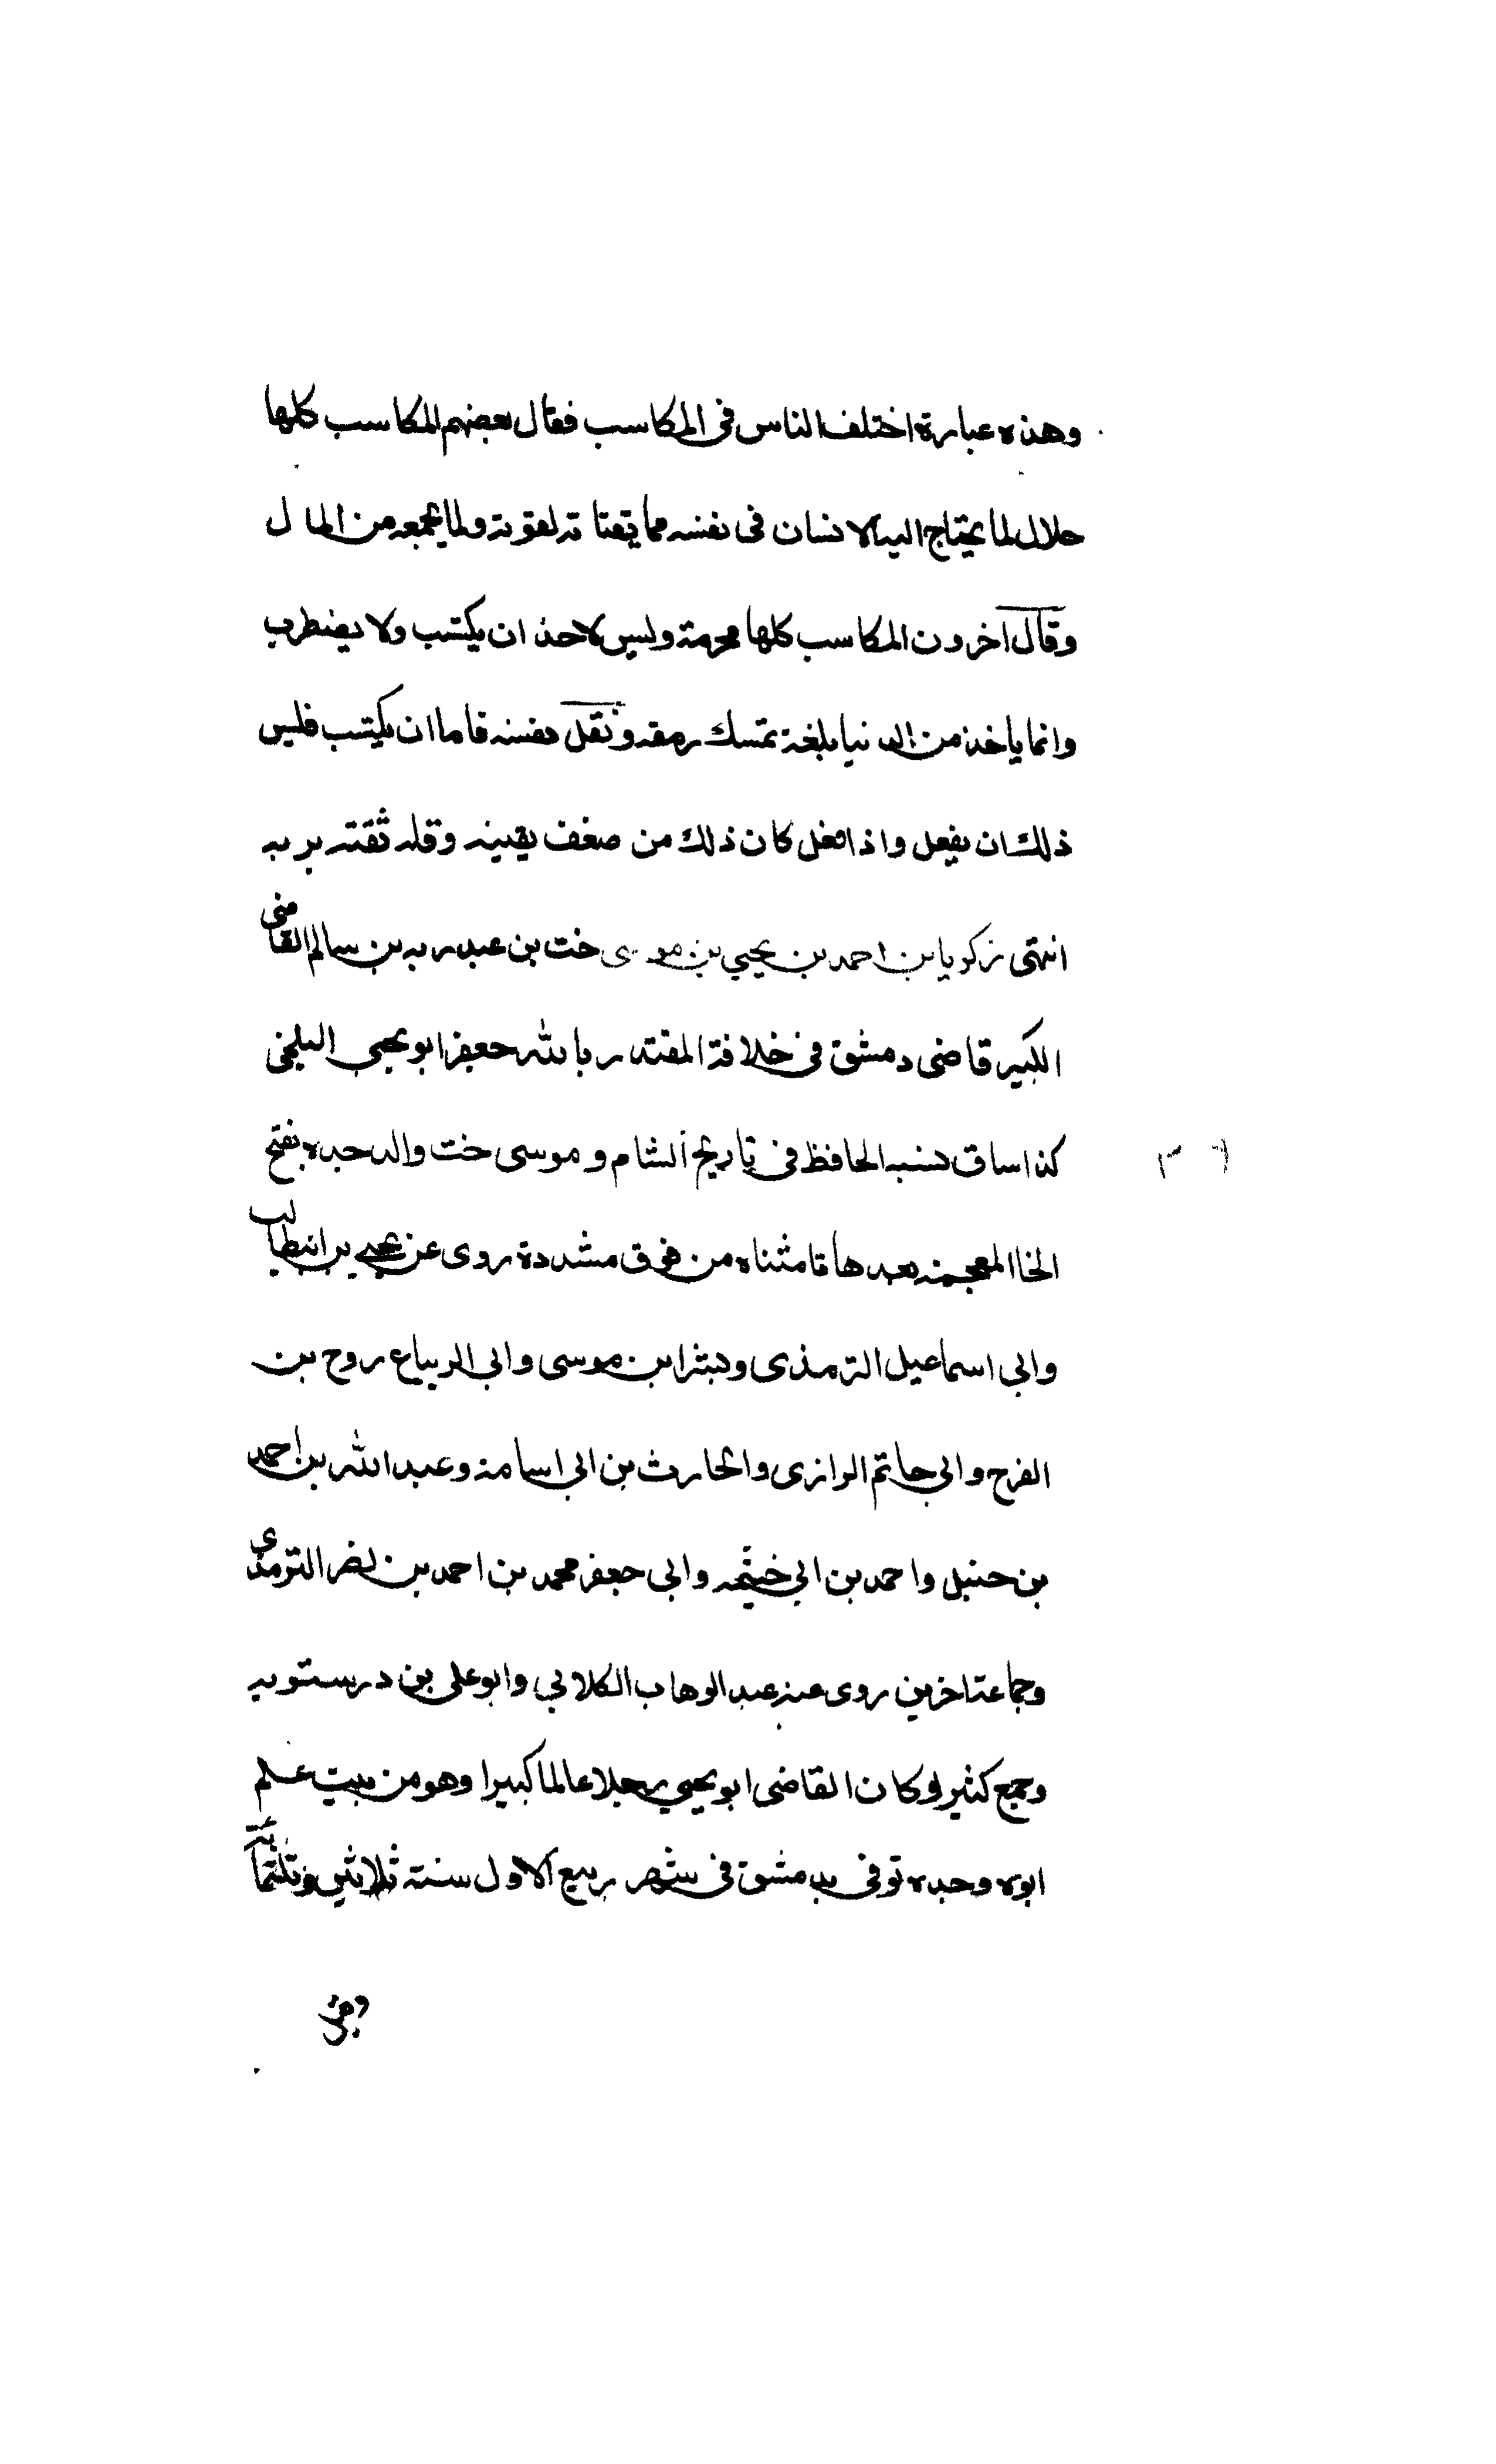 وهذه عبارة اختلف الناس فى المكاسب فقال بعضهم المكاسب كلها
حلال لما يحتاج اليه الانسان فى نفسه مما يقتاته لقوته ولما يجمعه من المال
وقال اخرون المكاسب كلها محرمة وليس لاحد ان يكتسب ولا يضطرب
وانما ياخذ من الدنيا بلغة تمسك رمقه وتقل نفسه فاما ان يكتسب فليس
ذلك ان يفعل واذا فعل كان ذلك من ضعف يقينه وقله ثقته بربه
انتهى زكريا بن احمد بن يحيي بن موسى خت بن عبد ربه بن سالم القاضى
الكبير قاضى دمشق فى خلافة المقتدر بالله جعفر ابو يحيى البلخى
كذا ساق نسبه الحافظ فى تاريخ الشام وموسى خت والد جده بفتح
الخا المعجمه بعدها تا مثناه من فوق مشددة روى عن يحيى بن ابي طالب
وابي اسماعيل الترمذى وبشر ابن موسى وابي الزنباع روح بن
الفرج وابي حاتم الرازى والحارث بن ابي اسامة وعبد الله بن احمد
بن حنبل واحمد بن ابي خيثمه وابي جعفر محمد بن احمد بن نصر الترمذي
وجماعة اخرين روى عنه عبد الوهاب الكلابي وابو على بن درستويه
وجمع كثير وكان القاضى ابو يحيي رجلا عالما كبيرا وهو من بيت علم
ابوه وجده توفى بدمشق فى شهر ربيع الاول سنة ثلاثين وثلثمائة
ومن